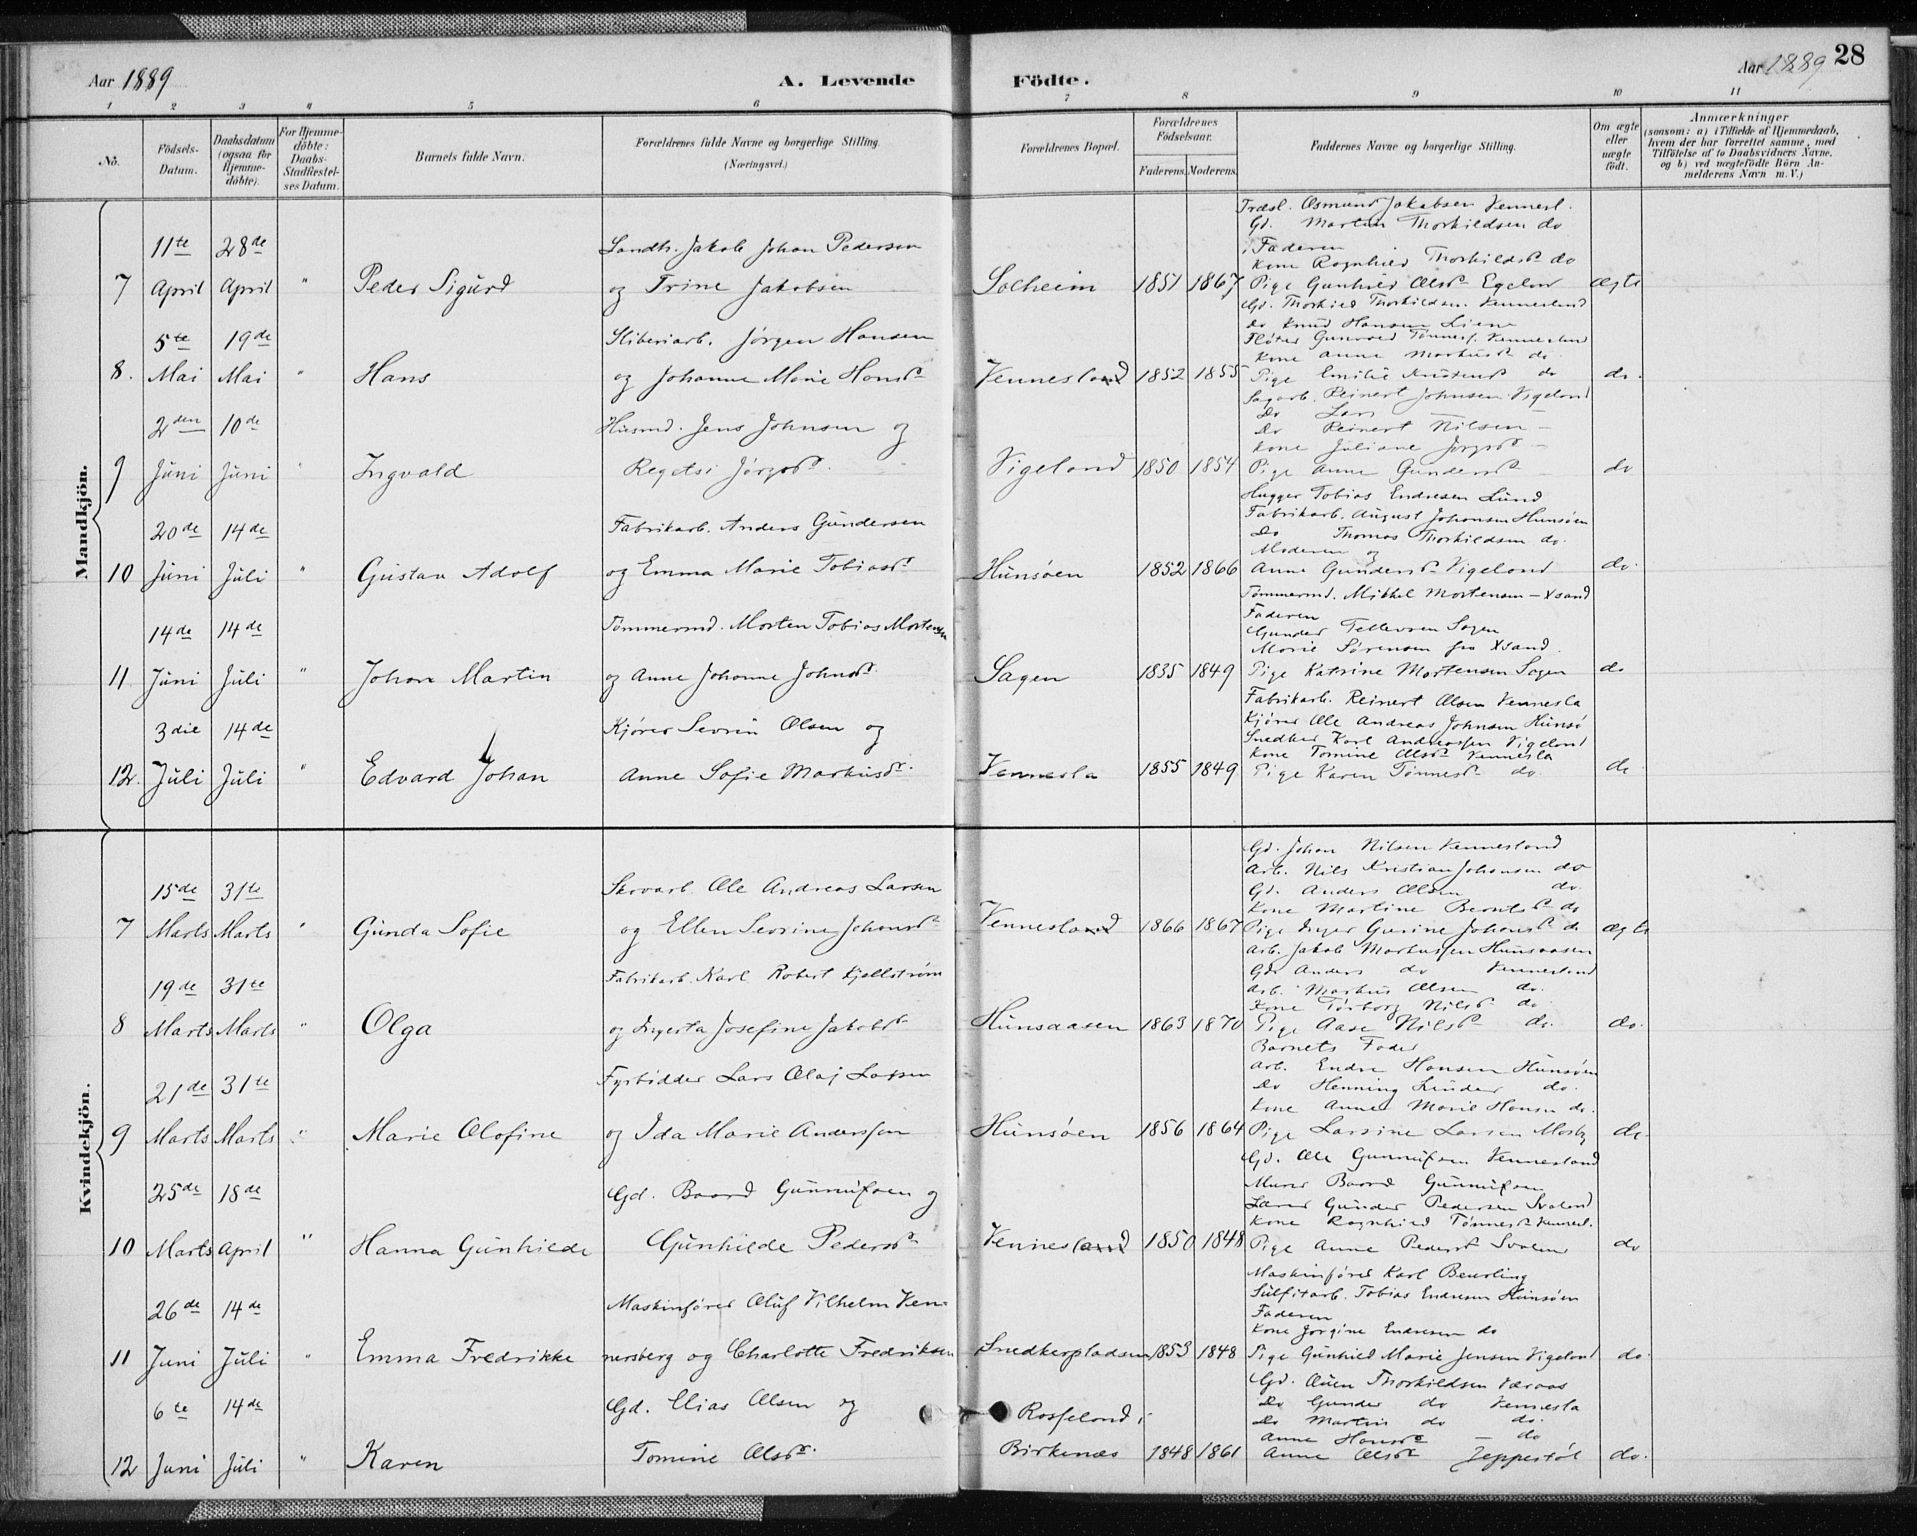 28
Aar 1889
A. Levende
Födte.
Aar 1889
1 2 3 4 5 6 7 8 9 10 11
No.
Födsels-Datum.
Daabsdatum (ogsaa for Hjemme-döbte).
For Hjemme-döbte: Daabs-Stadfæstel-ses Datum.
Barnets fulde Navn.
Forældrenes fulde Navne og borgerlige Stilling. (Næringsvei.)
Forældrenes Bopæl.
Forældrenes Födselsaar.
Faderens. Moderens.
Faddernes Navne og borgerlige Stilling.
Om ægte eller uægte födt.
Anmærkninger
(saasom: a) i Tilfælde af Hjemmedaab, hvem der har forrettet samme, med Tilföielse af to Daabsvidners Navne, og b) ved uægtefödte Börn Anmelderens Navn m. V.)
Mandkjön.
7 11te April 28de April " Peder Sigurd
Landh. Jakob Johan Pedersen
og Trine Jakobsen
Solheim 1851 1867
Træsl. Osmund Jakobsen Vennesl.
Gd. Martin Thorkildsen do
Faderen
Kone Ragnhild Thorkildsd. do
Pige Gunhild Olsd.
Gd. Thorkild Thorkildsen Vennesland
ægte
8. 5te Mai 19de Mai " Hans
Sliberiarb. Jørgen Hansen
og Johanne Marie Hansd.
Vennesland 1852 1855
do Knud Hansen Liene
Fløter Gunvald Tønnes. Vennesland
Kone Anne Markusd. do.
Pige Emilie Knutsens do
do.
9 2den Juni 10de Juni " Ingvald
Husmd. Jens Johnsen og
Regetsi Jørgsd.
Vigeland 1850 1854
Sagarb. Reinert Johnsen Vigeland
Do Lars —
Do Reinert Nilsen —
Kone Juliane Jørgsd. —
Pige Anne Gundersd. —
do
10 20de Juni 14de Juli " Gustav Adolf
Fabrikarb. Anders Gundersen
og Emma Marie Tobiasd.
Hunsøen 1852 1866
Hugger Tobias Endresen Lund
Fabrikarb. August Johansen Hunsøen
Do Thomas Thorkildsen do.
Moderen og
Anne Gundersd. Vigeland
do.
11 14de Juni 14de Juli " Johan Martin
Tømmermd. Morten Tobias Mortensen
og Anne Johanne Johnsd.
Sagen 1835 1849
Tømmermd. Mikkel Mortensen — Xsand
Faderen
Gunder Tellevsen Sagen
Marie Sørensen fra Xsand.
Pige Katrine Mortensen Sagen
do
12. 3die Juli 14de Juli " Edvard Johan
Kjører Sevrin Olsen og
Anne Sofie Markusd.
Vennesla 1855 1849
Fabrikarb. Reinert Olsen Vennesla
Kjører Ole Andreas Johnsen Hunsø
Snedker Karl Andreassen Vigeland
Kone Tomine Olsd. Vennesla
Pige Karen Tønnesd. do.
do
Kvindekjön.
7 15de Marts 31te Marts " Gunda Sofie
Ole Andreas Larsen
og Ellen Sevrine Johansd.
Vennesland 1866 1867
Gd. Johan Nilsen Vennesland
Arb. Nils Kristian Johansen do
Gd. Anders Olsen do.
Kone Martine Berntsd. do
Pige Inger Gurine Johansd. do
ægte
8 19de Marts 31te Marts " Olga
Fabrikarb. Karl Robert Kjellstrøm
og Ingerta Josefine Jakobsd.
Hunsaasen 1863 1870
Arb. Jakob Markussen Hunsaasen
Gd. Anders do Vennesland
Arb. Markus Olsen do.
Kone Torborg Nilsd. do.
Pige Aase Nilsd. do.
do.
9 21de Marts 31te Marts " Marie Olofine
Fyrbödder Lars Olaj Larsen
og Ida Marie Anderssen
Hunsøen 1856 1864
Barnets Fader
Arb. Endre Hansen Hunsøen
Do Henning Linder do.
Kone Anne Marie Hansen do.
Pige Larsine Larsen Mosby
do.
10 25de Marts 18de April " Hanna Gunhilde
Gd. Baard Gunnufsen og
Gunhilde Pedersd.
Vennesland 1850 1848
Gd. Ole Gunnufsen Vennesland
Murer Baard Gunnufsen
Lærer Gunder Pedersen Svaland
Kone Ragnhild Tønnesd. Vennesl.
Pige Anne Pedersd.
do
11 26de Juni 14de Juli " Emma Fredrikke
Maskinfører Oluf Vilhelm Ven-
nersberg og Charlotte Fredriksen
Snedkerpladsen 1853 1848
Maskinfører Karl Beurling
Sulfitarb. Tobias Endresen Hunsøen
Faderen
Kone Jorgine Endresen do
Pige Gunhild Marie Jensen Vigeland
do.
12 6te Juni 14de Juli " Karen
Gd. Elias Olsen og
Tomine Olsd.
Rosseland i
Birkenæs 1848 1861
Gd. Ouen Thorkildsen Væraas
Do Gunder do Vennesla
Do Martin do do.
Anne Hansd. — do
Anne Olsd. Jeppestøl
do.